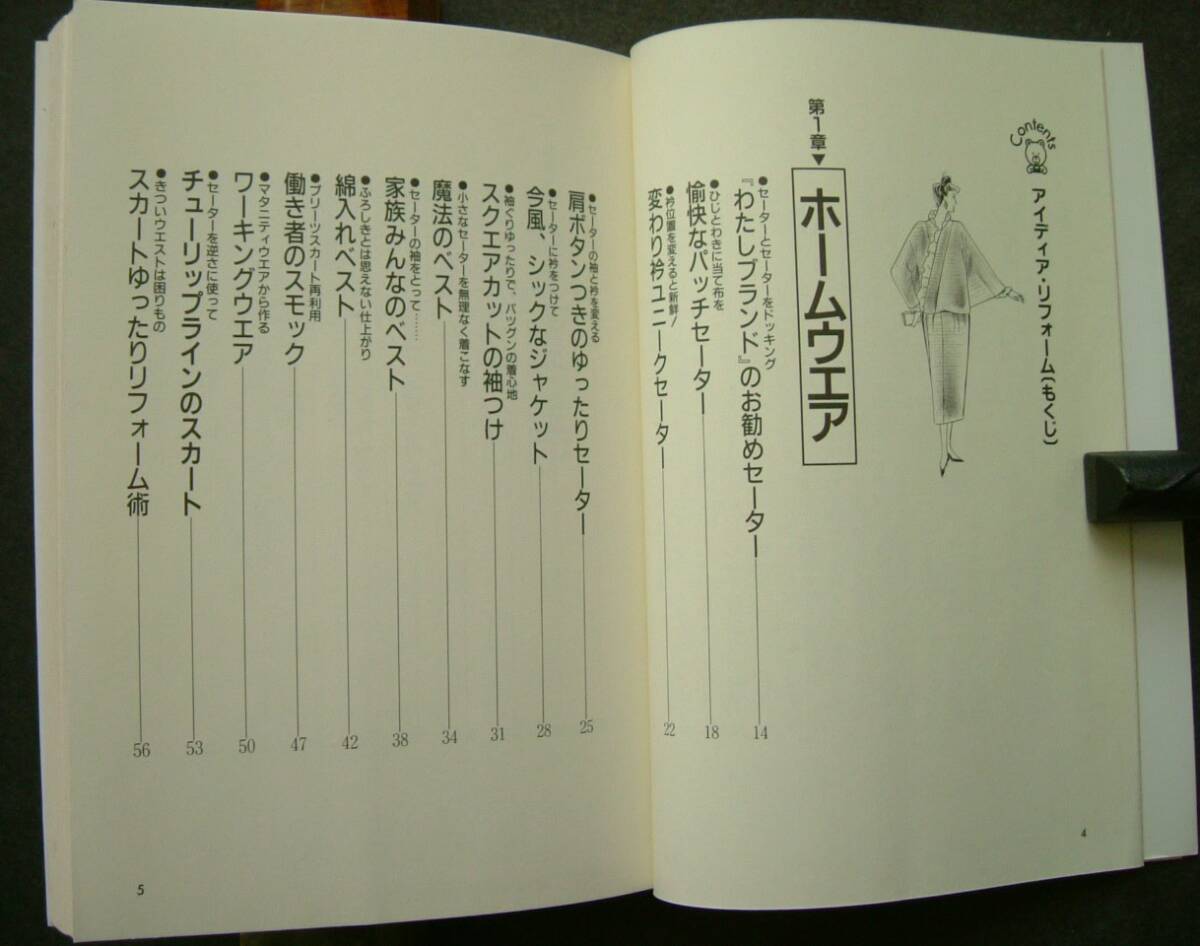 Contents
アイディア・リフォーム〔もくじ〕
第1章▼
ホームウエア
●セーターとセーターをドッキング
『わたしブランド』のお勧めセーター 14
●ひじとわきに当て布を
愉快なパッチセーター 18
●衿位置を変えると新鮮！
変わり衿ユニークセーター 22
4
●セーターの袖と衿を変える
肩ボタンつきのゆったりセーター 25
●セーターに衿をつけて
今風、シックなジャケット 28
●袖ぐりゆったりで、バツグンの着心地
スクエアカットの袖つけ 31
●小さなセーターを無理なく着こなす
魔法のベスト 34
●セーターの袖をとって……
家族みんなのベスト 38
●ふろしきとは思えない仕上がり
綿入れベスト 42
●プリーツスカート再利用
働き者のスモック 47
●マタニティウエアから作る
ワーキングウエア 50
●セーターを逆さに使って
チューリップラインのスカート 53
●きついウエストは困りもの
スカートゆったりリフォーム術 56
5